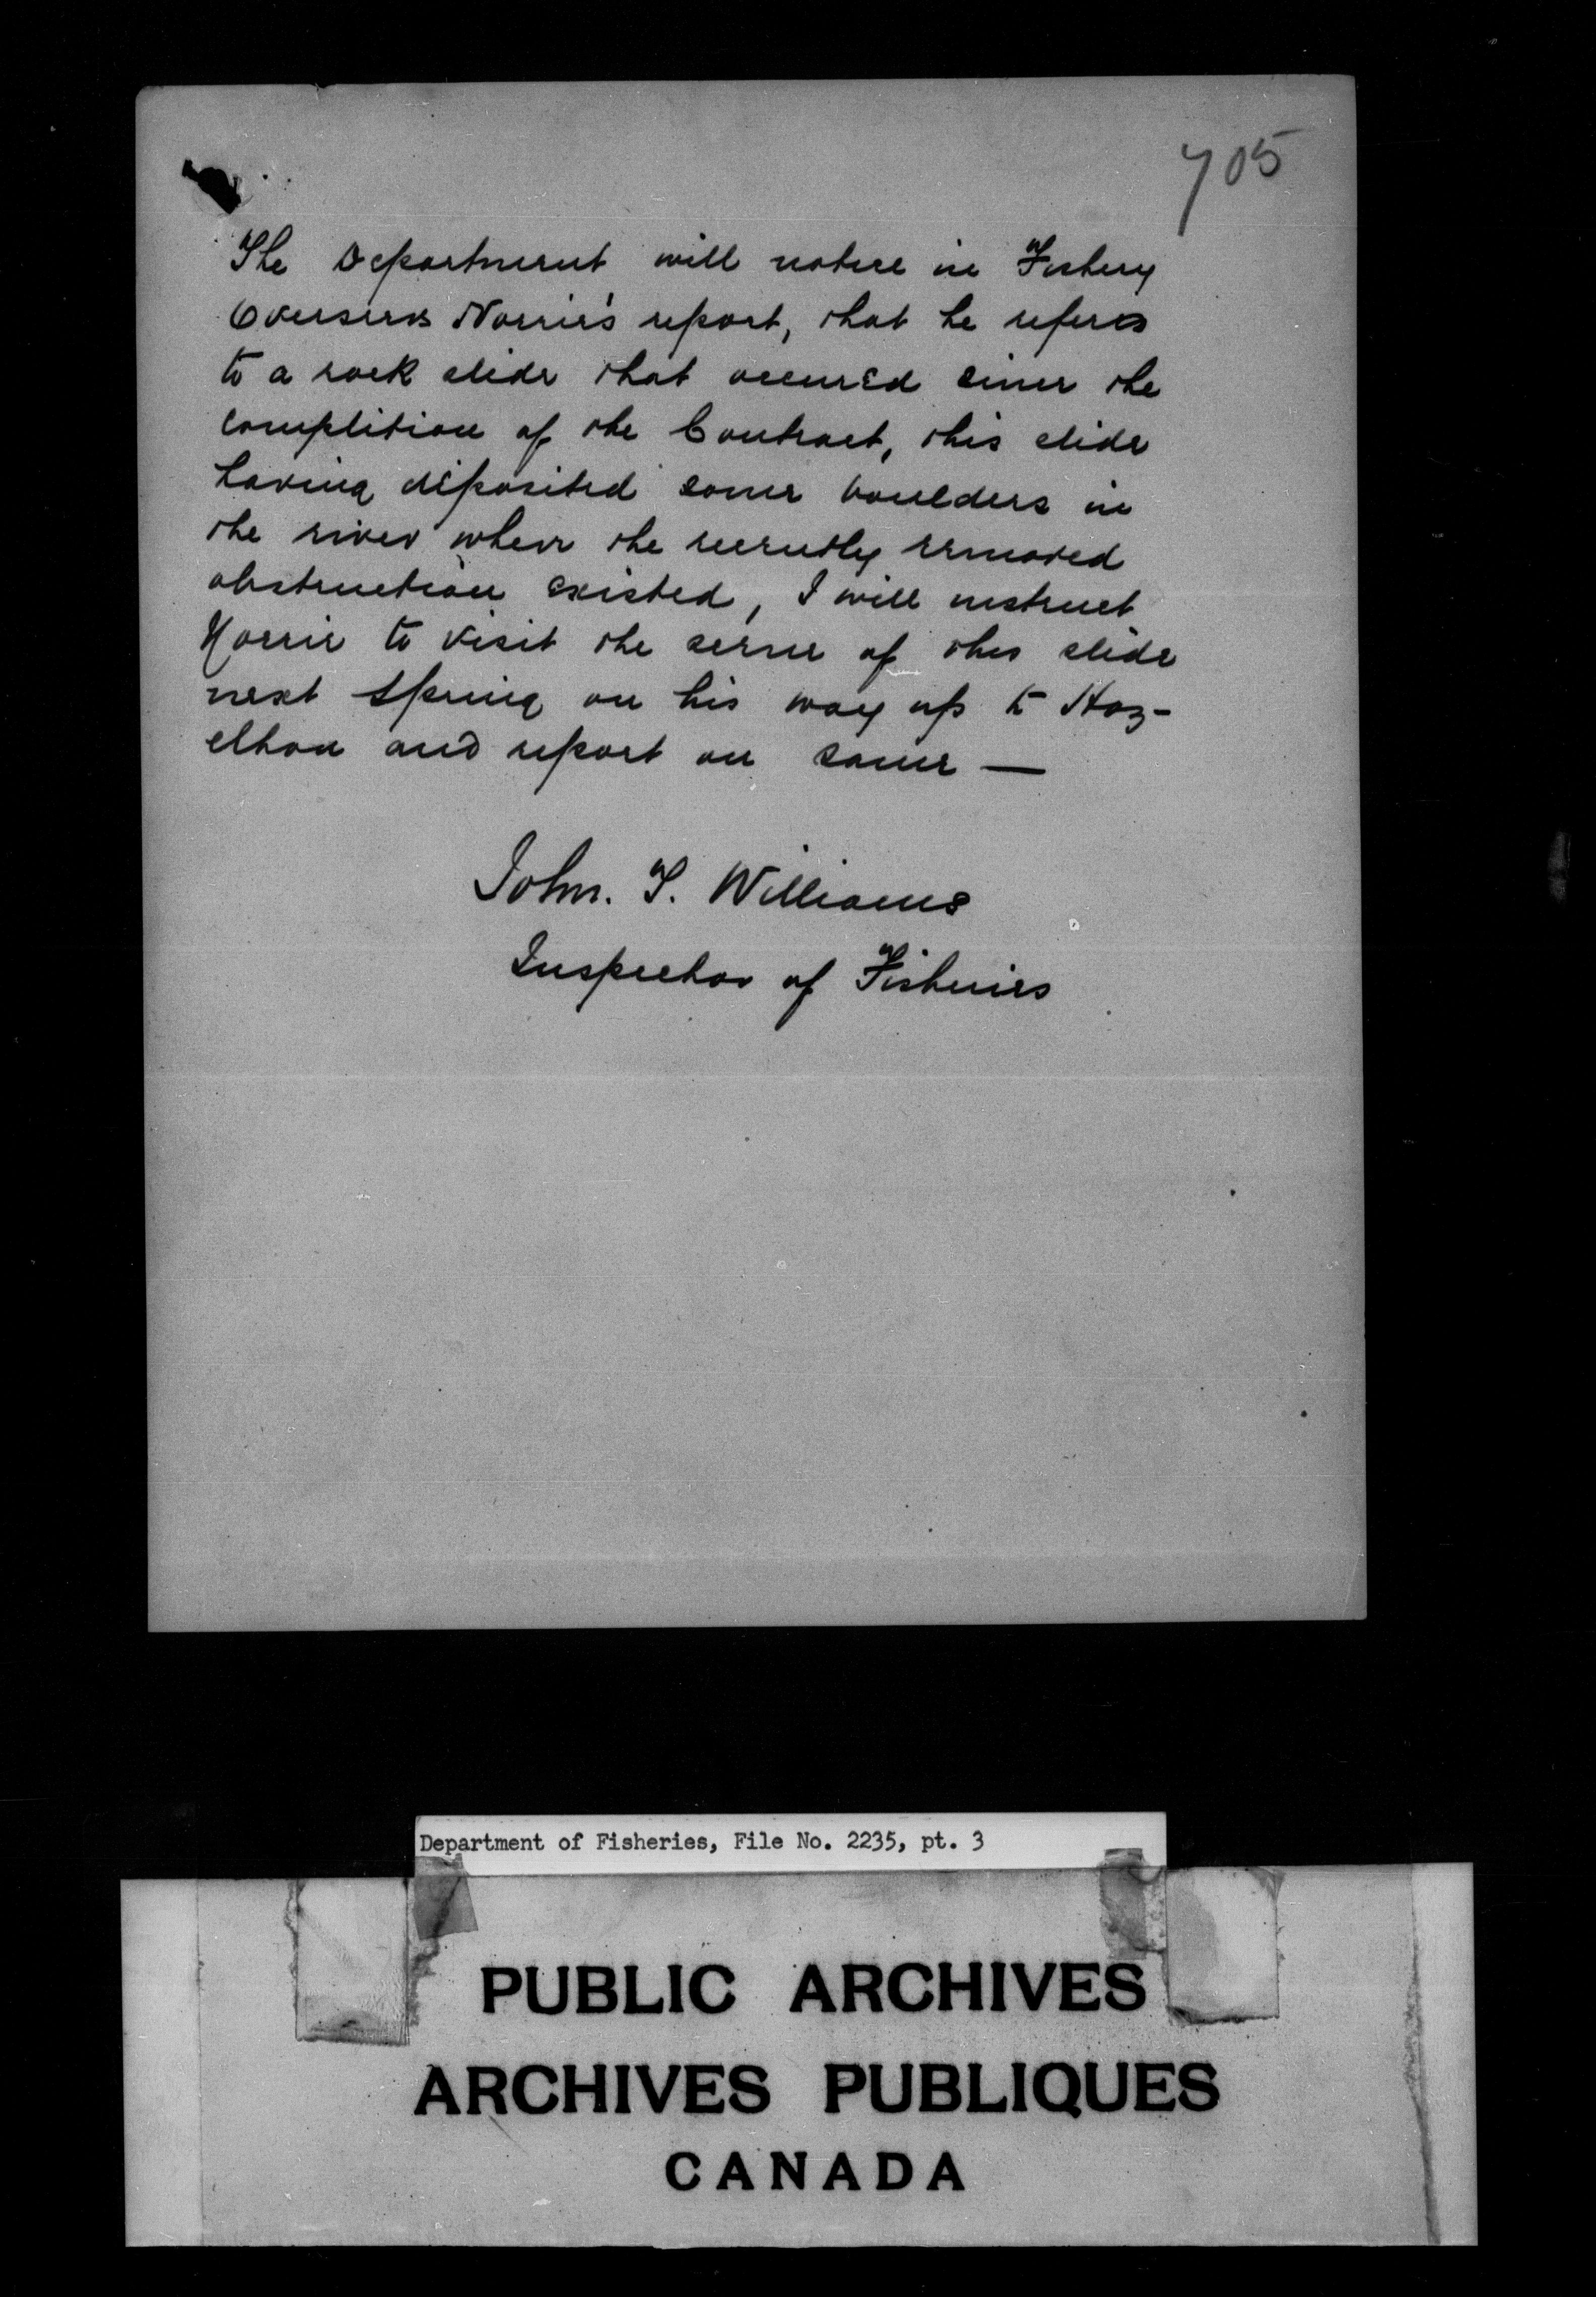 705
The Department will notice in Fishery
Overseers Norrie's report, that he referes
to a rock slide that occured since the
complition of the Contract, this slide
having deposited some boulders in
the river where the recently removed
obstruction existed, I will instruct
Norrie to visit the scene of this slide
next Spring on his way up to Haz-
elton and report on same —
John. T. Williams
Inspector of Fisheries
Department of Fisheries, File No. 2235, pt. 3
PUBLIC ARCHIVES
ARCHIVES PUBLIQUES
CANADA